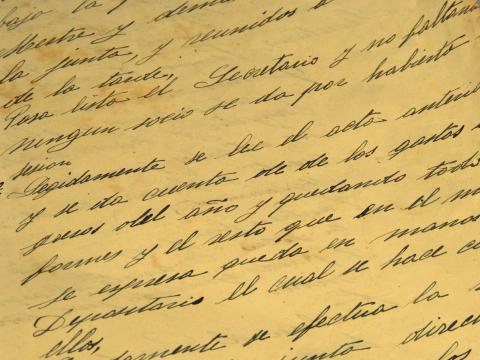 bajo la
Mestre y demas
la junta, y reunidos a
de la tarde,
Pasa lista el Secretario y no faltand
ningun socio se da por habierta
sesion
Segidamente se lee el acta anteri
y se da cuenta de de los gastos
gresos del año y quedando todo
formes y el resto que en el m
se expresa queda en manos
Depositario el cual se hace ca
ello,
damente se efectua la
junta direc